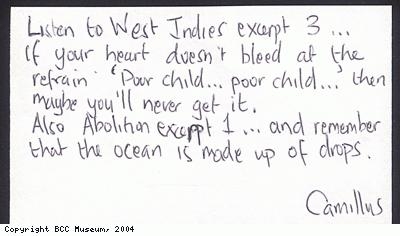 Listen to West Indies excerpt 3...
If your heart doesn't bleed at the
refrain 'Poor child... poor child...' then
maybe you'll never get it.
Also Abolition excerpt 1... and remember
that the ocean is made up of drops.
Camillus
Copyright BCC Museum, 2004